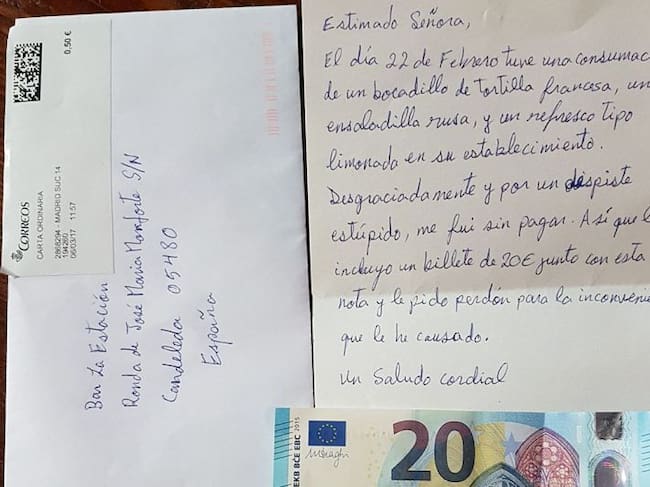 0,50 €
CORREOS
CARTA ORDINARIA
2868294 - MADRID SUC 14
194260
06/03/17 11:57
Bar La Estación
Ronda de José María Monforte S/N
Candeleda 05480
España
Estimado Señora,
El día 22 de Febrero tuve una consumac
de un bocadillo de tortilla francesa, un
ensaladilla rusa, y un refresco tipo
limonada en su establecimiento.
Desgraciadamente y por un despiste
estúpido, me fui sin pagar. Así que l
incluyo un billete de 20€ junto con esta
nota y le pido perdón para la inconvenie
que le he causado.
Un Saludo cordial
EKB BCE EBC 2015
20